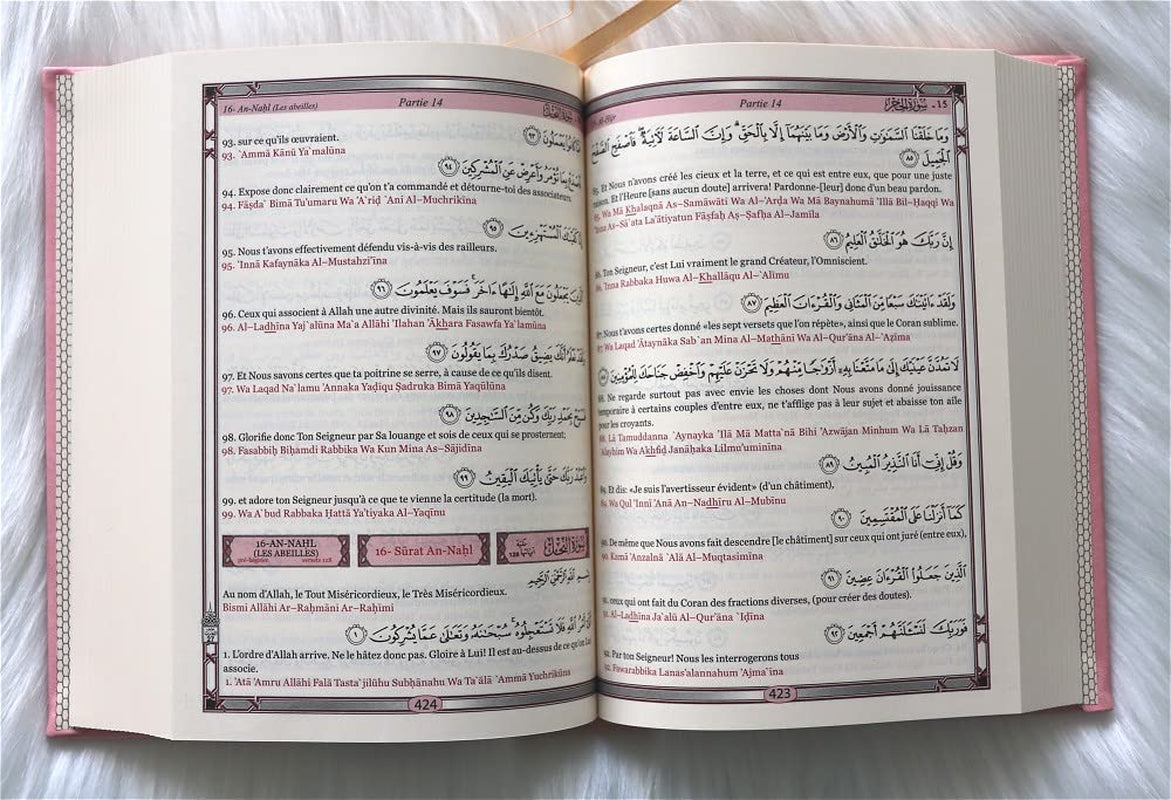 15 - سُورَةُ الحِجْر
Partie 14
Al-Hijr
وَمَا خَلَقْنَا السَّمَٰوَٰتِ وَالْأَرْضَ وَمَا بَيْنَهُمَآ إِلَّا بِالْحَقِّ ۗ وَإِنَّ السَّاعَةَ لَآتِيَةٌ ۖ فَاصْفَحِ الصَّفْحَ
الْجَمِيلَ ٨٥
Et Nous n'avons créé les cieux et la terre, et ce qui est entre eux, que pour une juste
raison. Et l'Heure [sans aucun doute] arrivera! Pardonne-[leur] donc d'un beau pardon.
Wa Mā Khalaqnā As–Samāwāti Wa Al–'Arḍa Wa Mā Baynahumā 'Illā Bil–Ḥaqqi Wa
'Inna As–Sā`ata La'ātiyatun Fāṣfaḥ Aṣ–Ṣafḥa Al–Jamīla
إِنَّ رَبَّكَ هُوَ الْخَلَّٰقُ الْعَلِيمُ ٨٦
Ton Seigneur, c'est Lui vraiment le grand Créateur, l'Omniscient.
'Inna Rabbaka Huwa Al–Khallāqu Al–`Alīmu
وَلَقَدْ ءَاتَيْنَٰكَ سَبْعًا مِّنَ الْمَثَانِي وَالْقُرْءَانَ الْعَظِيمَ ٨٧
Nous t'avons certes donné «les sept versets que l'on répète», ainsi que le Coran sublime.
Wa Laqad 'Ātaynāka Sab`an Mina Al–Mathānī Wa Al–Qur'āna Al–`Aẓīma
لَا تَمُدَّنَّ عَيْنَيْكَ إِلَىٰ مَا مَتَّعْنَا بِهِۦٓ أَزْوَٰجًا مِّنْهُمْ وَلَا تَحْزَنْ عَلَيْهِمْ وَاخْفِضْ جَنَاحَكَ لِلْمُؤْمِنِينَ ٨٨
88. Ne regarde surtout pas avec envie les choses dont Nous avons donné jouissance
temporaire à certains couples d'entre eux, ne t'afflige pas à leur sujet et abaisse ton aile
pour les croyants.
88. Lā Tamuddanna `Aynayka 'Ilā Mā Matta`nā Bihi 'Azwājan Minhum Wa Lā Taḥzan
`Alayhim Wa Akhfiḍ Janāḥaka Lilmu'uminīna
وَقُلْ إِنِّيٓ أَنَا النَّذِيرُ الْمُبِينُ ٨٩
89. Et dis: «Je suis l'avertisseur évident» (d'un châtiment),
89. Wa Qul 'Innī 'Anā An–Nadhīru Al–Mubīnu
كَمَآ أَنزَلْنَا عَلَى الْمُقْتَسِمِينَ ٩٠
90. De même que Nous avons fait descendre [le châtiment] sur ceux qui ont juré (entre eux),
90. Kamā 'Anzalnā `Alā Al–Muqtasimīna
الَّذِينَ جَعَلُوا الْقُرْءَانَ عِضِينَ ٩١
91. ceux qui ont fait du Coran des fractions diverses, (pour créer des doutes).
91. Al–Ladhīna Ja`alū Al–Qur'āna `Iḍīna
فَوَرَبِّكَ لَنَسْـَٔلَنَّهُمْ أَجْمَعِينَ ٩٢
92. Par ton Seigneur! Nous les interrogerons tous
92. Fawarabbika Lanas'alannahum 'Ajma`īna
423
16- An-Naḥl (Les abeilles)
Partie 14
سُورَةُ النَّحْل
كَانُوا يَعْمَلُونَ ٩٣
93. sur ce qu'ils œuvraient.
93. `Ammā Kānū Ya`malūna
بِمَا تُؤْمَرُ وَأَعْرِضْ عَنِ الْمُشْرِكِينَ ٩٤
94. Expose donc clairement ce qu'on t'a commandé et détourne-toi des associateurs.
94. Fāṣda` Bimā Tu'umaru Wa 'A`riḍ `Ani Al–Muchrikīna
كَفَيْنَٰكَ الْمُسْتَهْزِءِينَ ٩٥
95. Nous t'avons effectivement défendu vis-à-vis des railleurs.
95. 'Innā Kafaynāka Al–Mustahzi'īna
يَجْعَلُونَ مَعَ اللَّهِ إِلَٰهًا ءَاخَرَ ۚ فَسَوْفَ يَعْلَمُونَ ٩٦
96. Ceux qui associent à Allah une autre divinité. Mais ils sauront bientôt.
96. Al–Ladhīna Yaj`alūna Ma`a Allāhi 'Ilahan 'Ākhara Fasawfa Ya`lamūna
نَعْلَمُ أَنَّكَ يَضِيقُ صَدْرُكَ بِمَا يَقُولُونَ ٩٧
97. Et Nous savons certes que ta poitrine se serre, à cause de ce qu'ils disent.
97. Wa Laqad Na`lamu 'Annaka Yaḍīqu Ṣadruka Bimā Yaqūlūna
بِحَمْدِ رَبِّكَ وَكُن مِّنَ السَّٰجِدِينَ ٩٨
98. Glorifie donc Ton Seigneur par Sa louange et sois de ceux qui se prosternent;
98. Fasabbiḥ Biḥamdi Rabbika Wa Kun Mina As–Sājidīna
رَبَّكَ حَتَّىٰ يَأْتِيَكَ الْيَقِينُ ٩٩
99. et adore ton Seigneur jusqu'à ce que te vienne la certitude (la mort).
99. Wa A`bud Rabbaka Ḥattá Ya'tiyaka Al–Yaqīnu
16-AN-NAHL
(LES ABEILLES)
pré-hégirien versets 128
16- Sūrat An-Naḥl
سُورَةُ النَّحْل
مكية
آياتها 128
بِسْمِ اللَّهِ الرَّحْمَٰنِ الرَّحِيمِ
Au nom d'Allah, le Tout Miséricordieux, le Très Miséricordieux.
Bismi Allāhi Ar–Raḥmāni Ar–Raḥīmi
أَمْرُ اللَّهِ فَلَا تَسْتَعْجِلُوهُ ۚ سُبْحَٰنَهُۥ وَتَعَٰلَىٰ عَمَّا يُشْرِكُونَ ١
1. L'ordre d'Allah arrive. Ne le hâtez donc pas. Gloire à Lui! Il est au-dessus de ce qu'on Lui
associe.
1. 'Atá 'Amru Allāhi Falā Tasta`jilūhu Subḥānahu Wa Ta`ālá `Ammā Yuchrikūna
424